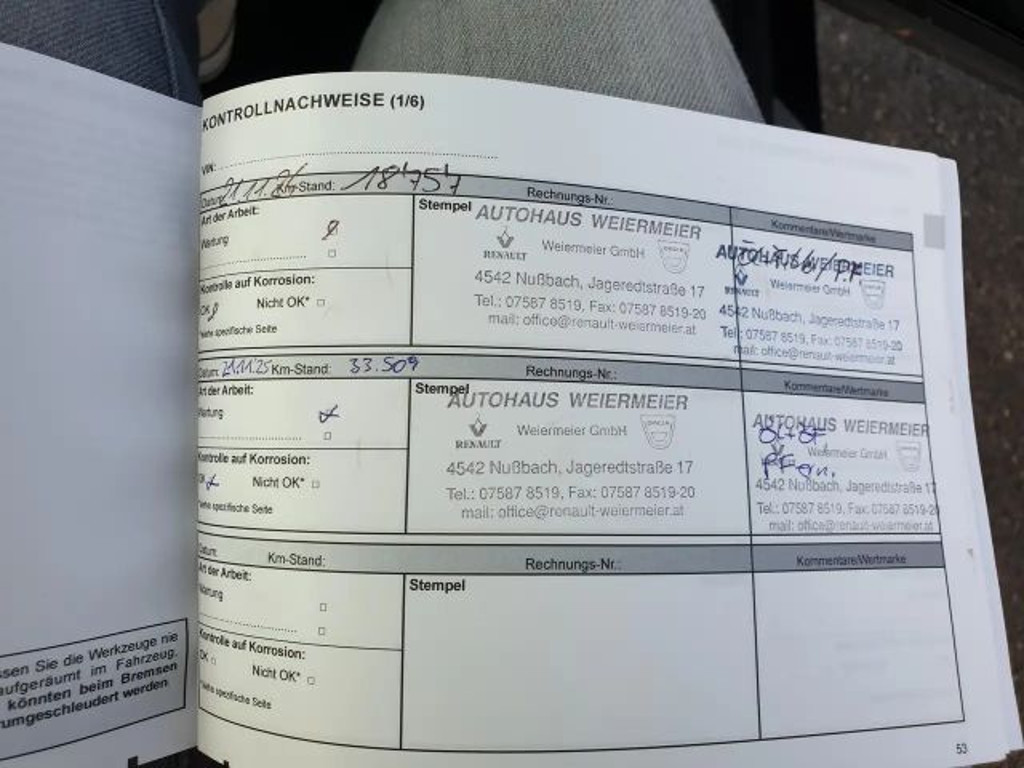 KONTROLLNACHWEISE (1/6)
VIN:
Datum: 21.11. Km-Stand: 18'757 Rechnungs-Nr.:
Art der Arbeit:
Wartung
Kontrolle auf Korrosion:
OK Nicht OK* □
*siehe spezifische Seite
Stempel
AUTOHAUS WEIERMEIER
RENAULT Weiermeier GmbH DACIA
4542 Nußbach, Jageredtstraße 17
Tel.: 07587 8519, Fax: 07587 8519-20
mail: office@renault-weiermeier.at
Kommentare/Wertmarke
AUTOHAUS WEIERMEIER
RENAULT Weiermeier GmbH
4542 Nußbach, Jageredtstraße 17
Tel.: 07587 8519, Fax: 07587 8519-20
mail: office@renault-weiermeier.at
Datum: 21.11.'25 Km-Stand: 33.509 Rechnungs-Nr.:
Art der Arbeit:
Wartung
Kontrolle auf Korrosion:
OK Nicht OK* □
*siehe spezifische Seite
Stempel
AUTOHAUS WEIERMEIER
RENAULT Weiermeier GmbH DACIA
4542 Nußbach, Jageredtstraße 17
Tel.: 07587 8519, Fax: 07587 8519-20
mail: office@renault-weiermeier.at
Kommentare/Wertmarke
AUTOHAUS WEIERMEIER
Öl+ÖF
Weiermeier GmbH
4542 Nußbach, Jageredtstraße 17
Tel.: 07587 8519, Fax: 07587 8519-20
mail: office@renault-weiermeier.at
Datum: Km-Stand: Rechnungs-Nr.:
Art der Arbeit:
Wartung □
□
Kontrolle auf Korrosion:
OK □ Nicht OK* □
*siehe spezifische Seite
Stempel
Kommentare/Wertmarke
ssen Sie die Werkzeuge nie
aufgeräumt im Fahrzeug,
könnten beim Bremsen
rumgeschleudert werden
53